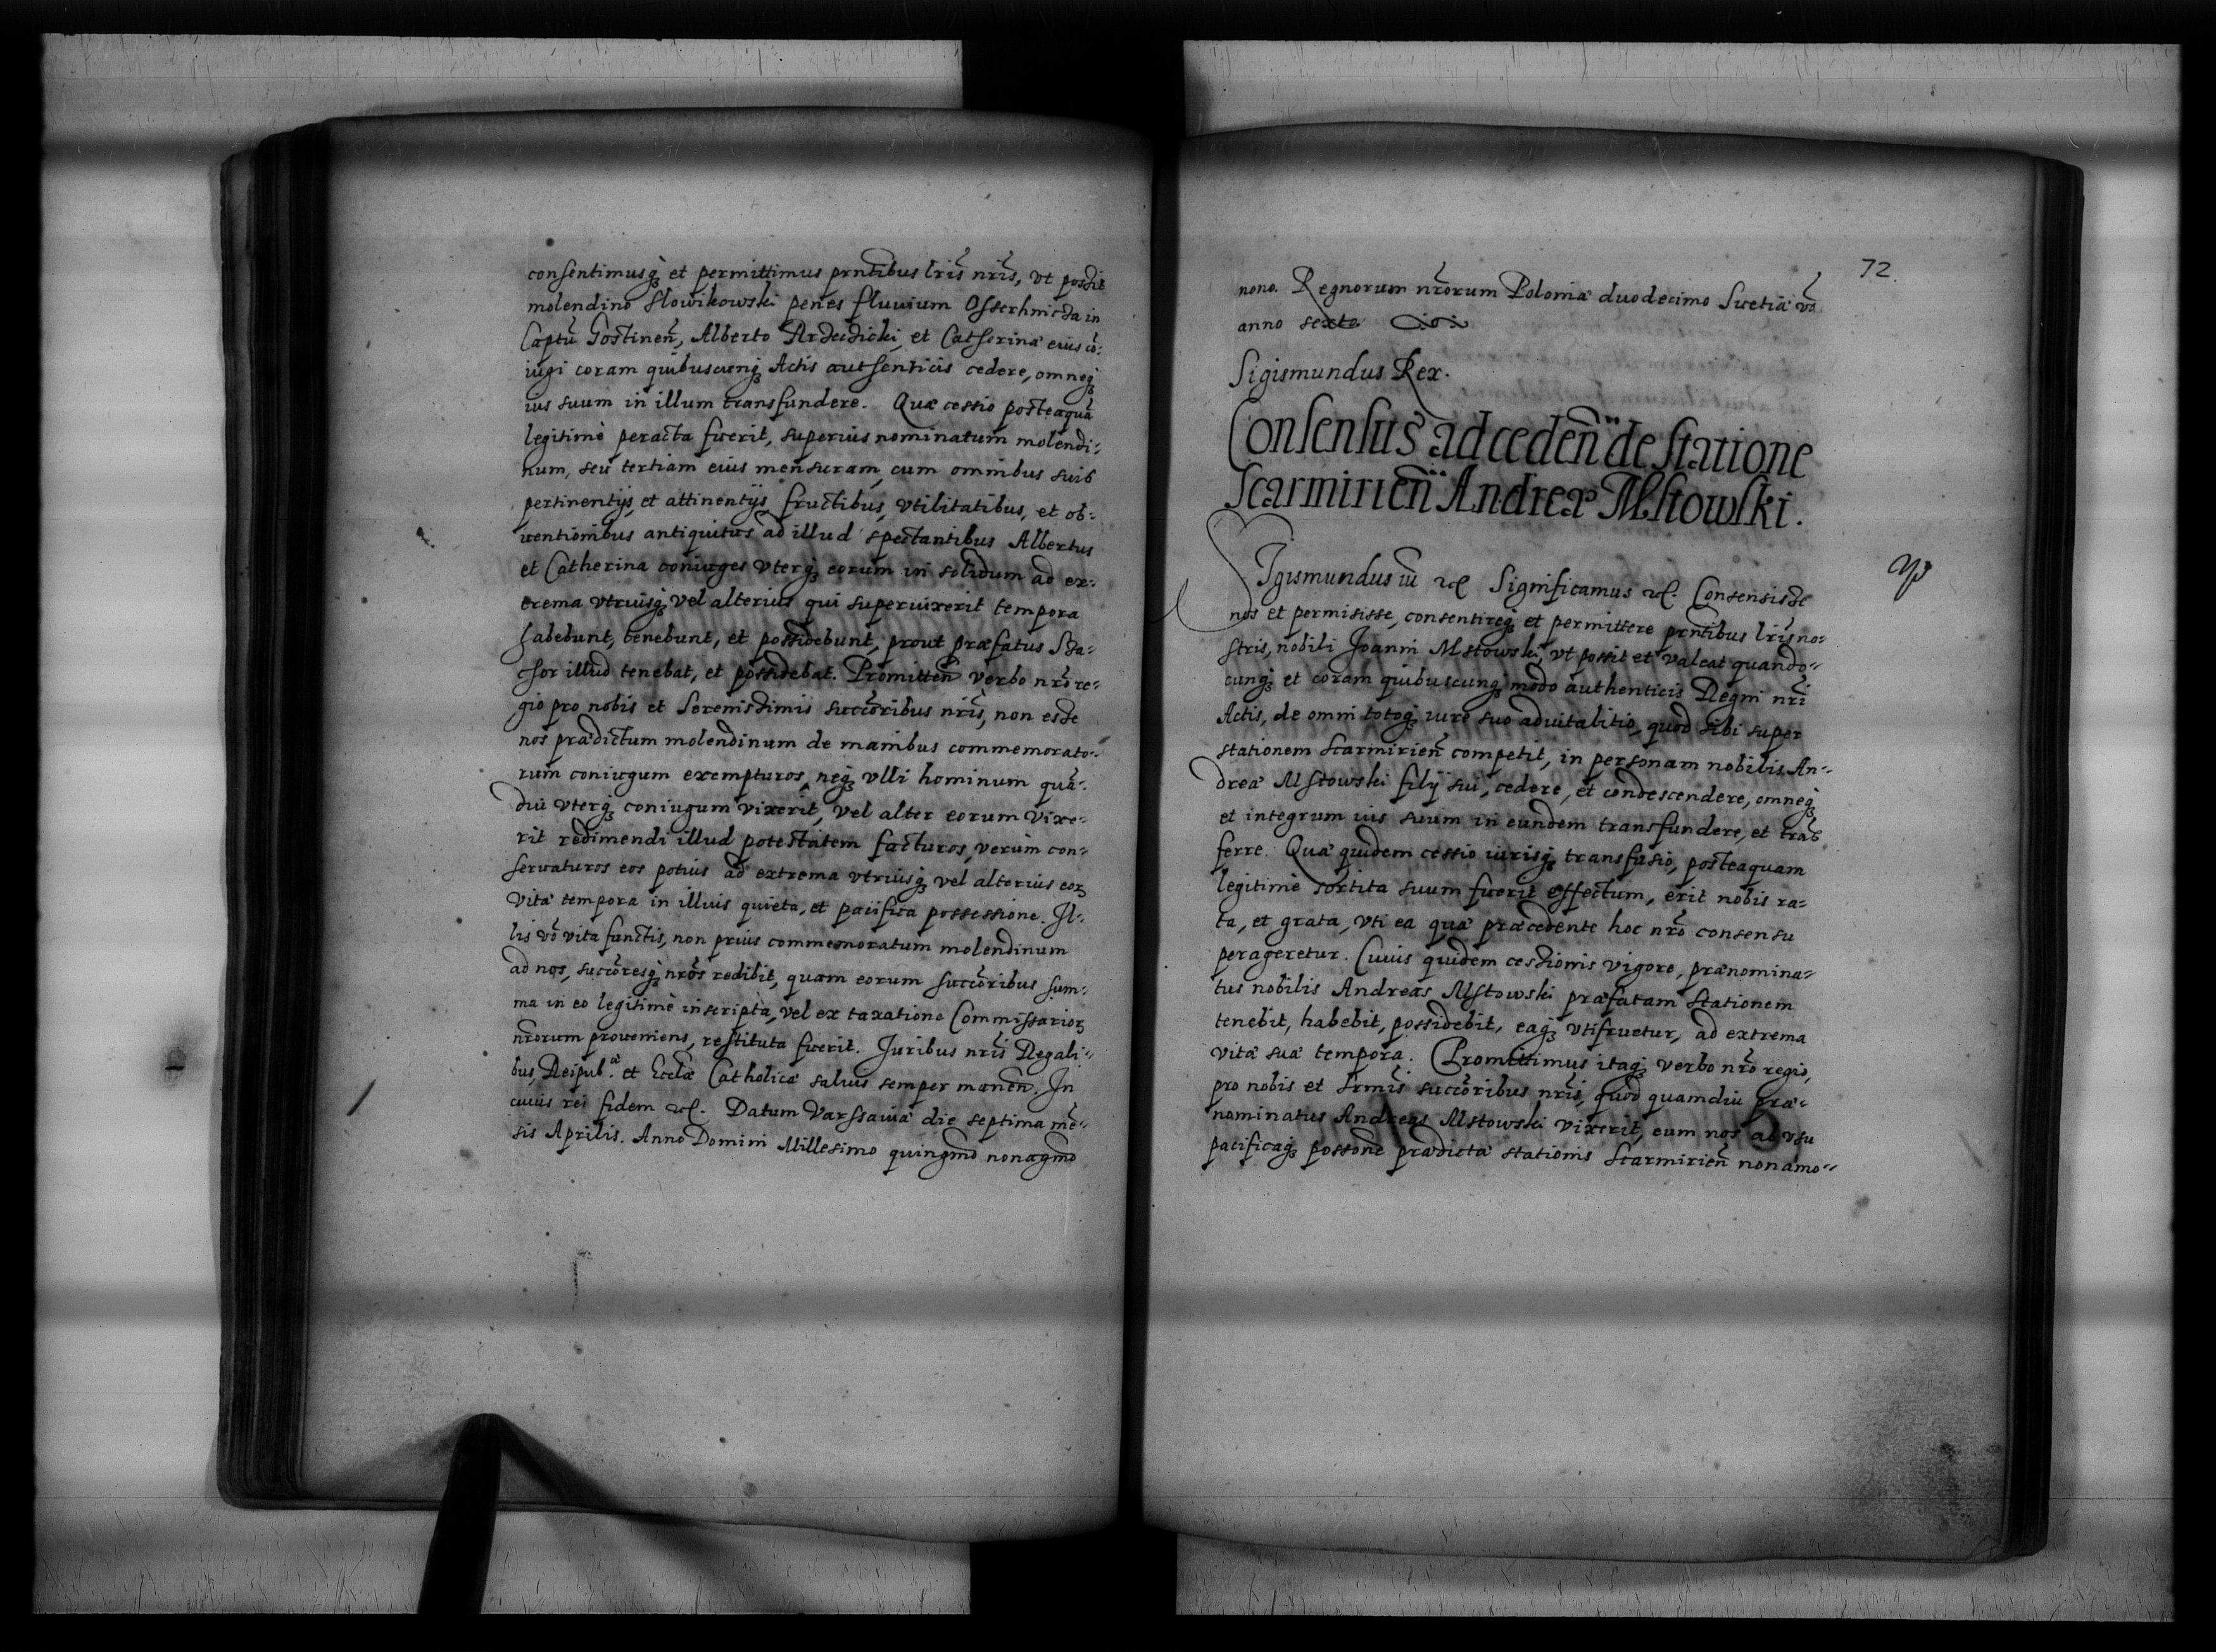 consentimusq; et permittimus prntibus lris nris, vt possit
molendino Slowikowski penes fluuium Osserhnicza in
Captu Gostinen, Alberto et Catherinæ eius co-
iugi coram quibuscunq; Actis authenticis cedere, omneq;
ius suum in illum transfundere. Quæ cessio posteaquā
legitimè peracta fuerit, superius nominatum molendi-
num, seu tertiam eius mensuram, cum omnibus suis
pertinentijs, et attinentijs, fructibus, vtilitatibus, et ob-
uentionibus antiquitus ad illud spectantibus Albertus
et Catherina coniuges vterq; eorum in solidum ad ex-
trema vtriusq; vel alterius qui superuixerit tempora
habebunt, tenebunt, et possidebunt, prout præfatus Sta-
illud tenebat, et possidebat. Promitten verbo nro re-
gio pro nobis et Serenissimis succoribus nris, non esse
nos prædictum molendinum de manibus commemorato-
rum coniugum exempturos, neq; vlli hominum quā-
diu vterq; coniugum vixerit, vel alter eorum vixe-
rit redimendi illud potestatem facturos, verùm con-
seruaturos eos potius ad extrema vtriusq; vel alterius eor
vitæ tempora in illius quieta, et pacifica possessione. Il-
lis vō vita functis, non prius commemoratum molendinum
ad nos, succoresq; nros redibit, quam eorum succoribus sum-
ma in eo legitimè inscripta, vel ex taxatione Commissarior
nrorum proueniens, restituta fuerit. Juribus nris Regali-
bus, Reipub.æ et Ecclæ Catholicæ saluis semper manen. In
cuius rei fidem etc. Datum Varssauiæ die septima mē-
sis Aprilis. Anno Domini Millesimo quingmo nonagmo
72
nono. Regnorum nrorum Poloniæ duodecimo Suetiæ vō
anno sexto
Sigismundus Rex.
Consensus ad ceden de statione
Scarmirien Andreæ Mstowski.
Sigismundus iii etc Significamus etc. Consensisse
nos et permisisse, consentireq; et permittere prntibus lris no-
stris, nobili Joanni Mstowski, vt possit et valeat quando-
cunq; et coram quibuscunq; modo authenticis Regni nri
Actis, de omni totoq; iure suo aduitalitio, quod sibi super
stationem Scarmirien competit, in personam nobilis An-
dreæ Mstowski filij sui, cedere, et condescendere, omneq;
et integrum ius suum in eundem transfundere, et trās
ferre. Quæ quidem cessio iurisq; transfusio, posteaquam
legitimè sortita suum fuerit effectum, erit nobis ra-
ta, et grata, vti ea quæ præcedente hoc nro consensu
perageretur. Cuius quidem cessionis vigore, prænomina-
tus nobilis Andreas Mstowski præfatam stationem
tenebit, habebit, possidebit, eaq; vtifruetur, ad extrema
vitæ suæ tempora. Promittimus itaq; verbo nro regio,
pro nobis et Srmis succoribus nris, quod quamdiu præ-
nominatus Andreas Mstowski vixerit, eum nos ab vsu
pacificaq; possone prædictæ stationis Scarmirien non amo-